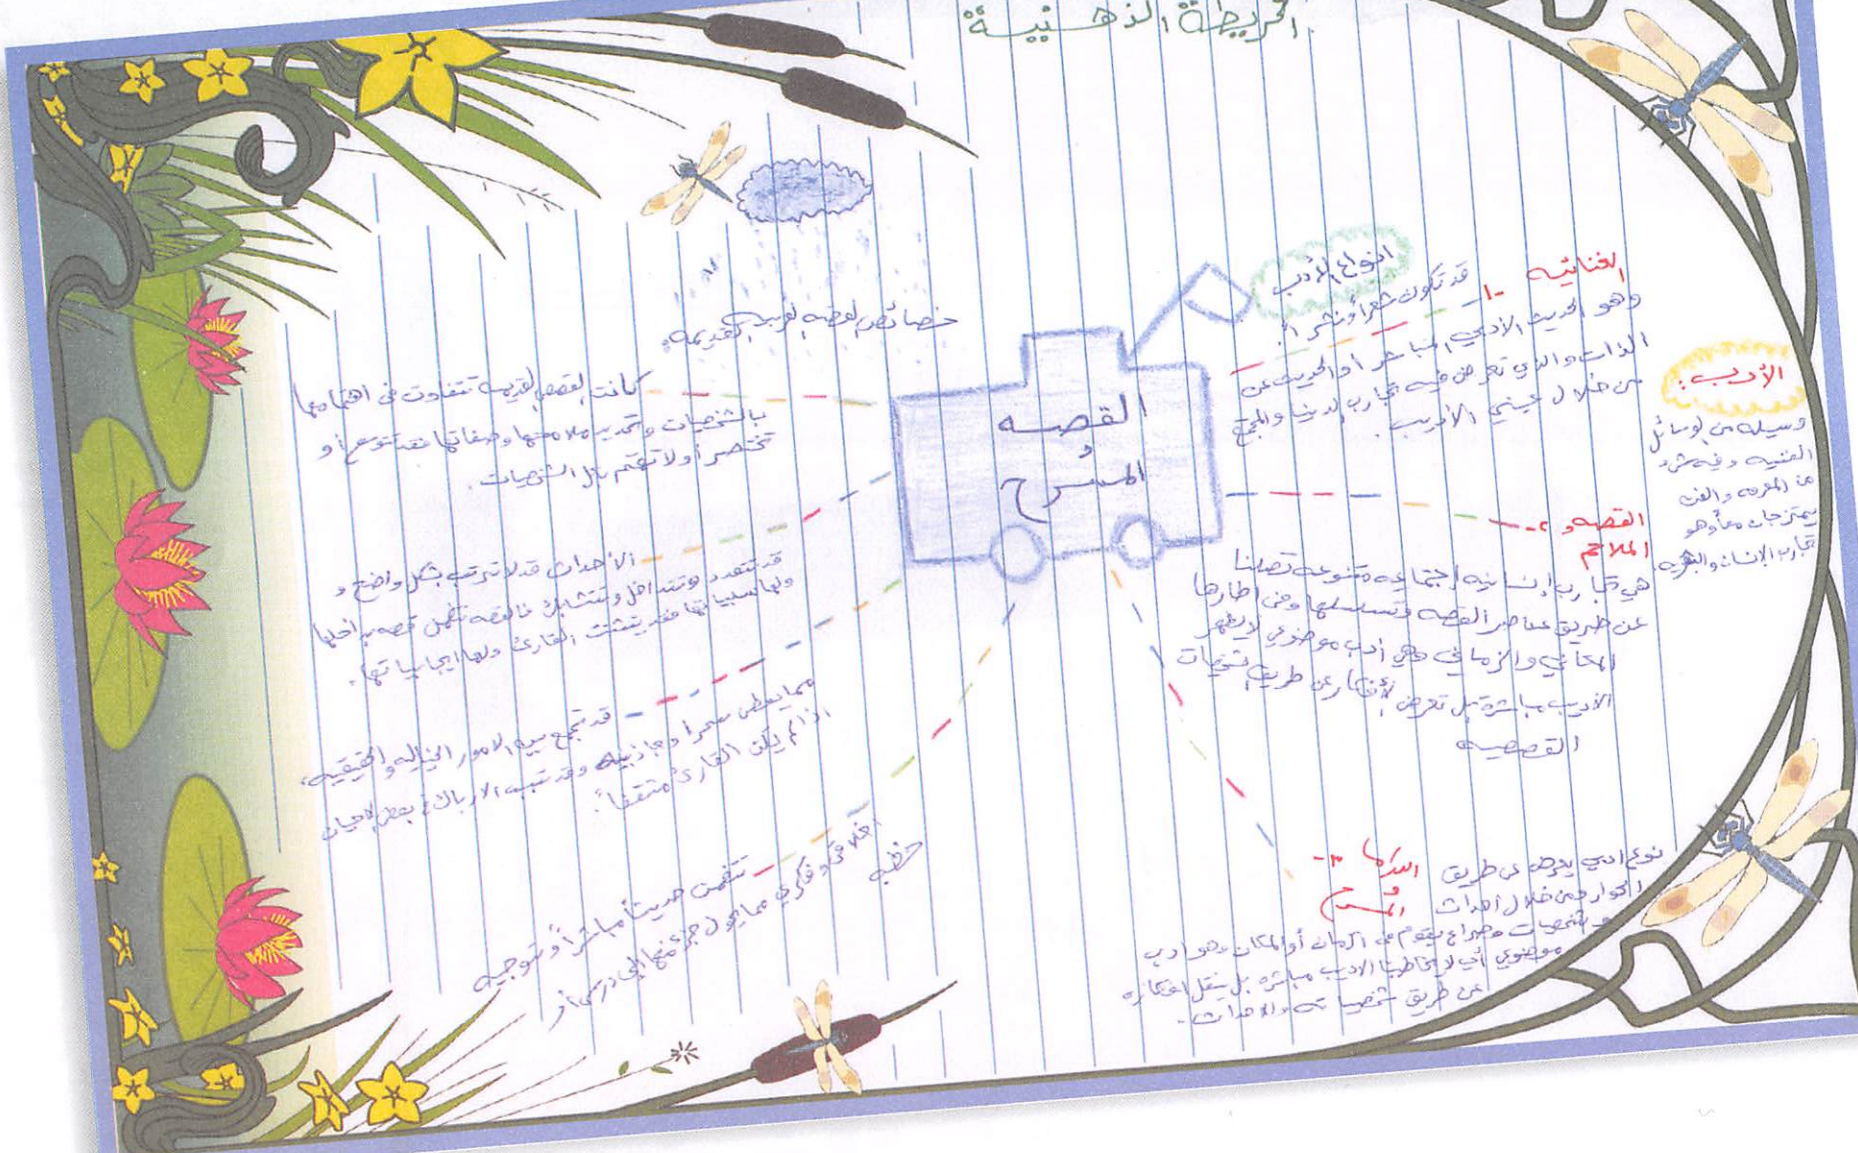 الخريطة الذهنية
القصه
و
المسرح
الأدب:
وسيله من الوسائل
الفنيه وفيه شيء
من المعرفه والفن
يمتزجان معاً وهو
تجارب الانسان والبشريه.
انواع الأدب
قد تكون شعراً أو نثراً.
١- الغنائيه
وهو الحديث الأدبي المباشر او الحديث عن
الذات والذي تعرض فيه تجارب الدنيا والمجتمع
من خلال عيني الأديب.
٢- القصه و
الملاحم
هي تجارب إنسانيه إجتماعيه متنوعه تصلنا
عن طريق عناصر القصه وتسلسلها وفي اطارها
المكاني والزماني وهي أدب موضوعي لا يظهر
الاديب مباشرة بل تعرض الأفكار عن طريق الشخصيات
القصصيه
٣- الدراما
و
المسرح
نوع ادبي يعرض عن طريق
الحوار من خلال احداث
وشخصيات وصراع يقوم في الزمان أو المكان وهو ادب
موضوعي أي لا يخاطبنا الاديب مباشره بل ينقل افكاره
عن طريق شخصياته والاحداث.
خصائص القصه العربيه القديمه.
كانت القصص القديمة تتفاوت في اهتمامها
بالشخصيات وتحديد ملامحها وصفاتها فقد تتوسع أو
تختصر أو لا تهتم بكل الشخصيات.
الأحداث قد لا ترتب بشكل واضح و
قد تتعدد وتتداخل وتتشابك فالقصه تكمن قصه بداخلها
ولها سلبياتها فقد يتشتت القارئ ولها ايجابياتها.
قد تجمع بين الامور الخياليه والحقيقيه،
مما يعطي سحراً وجاذبيه وقد تسبب الارباك في بعض الاحيان
اذا لم يكن القارئ مثقفاً.
تتضمن حديثاً مباشراً وتوجيه
اخلاقي و فكري مما يحول جزء منها إلى درس أو
خطبه